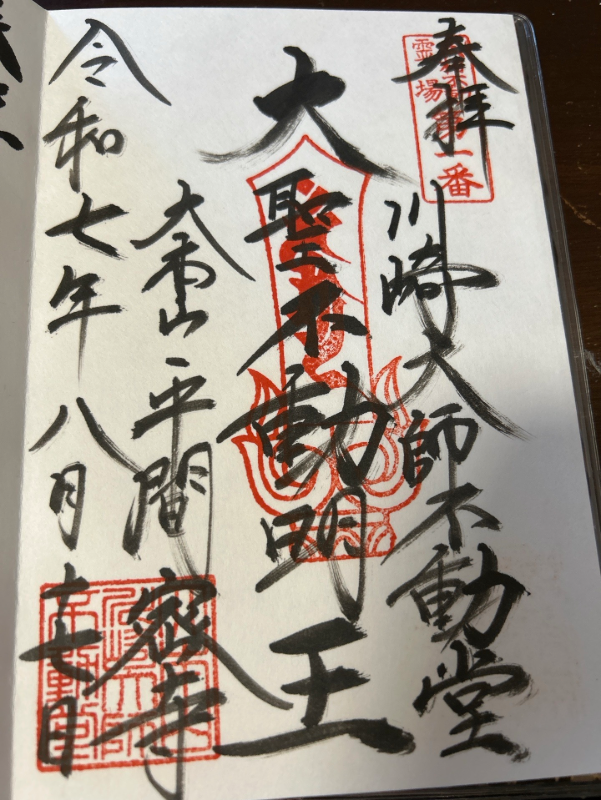 奉拝
霊場
第一番
川崎大師不動堂
大聖不動明王
大本山平間密寺
令和七年八月十七日